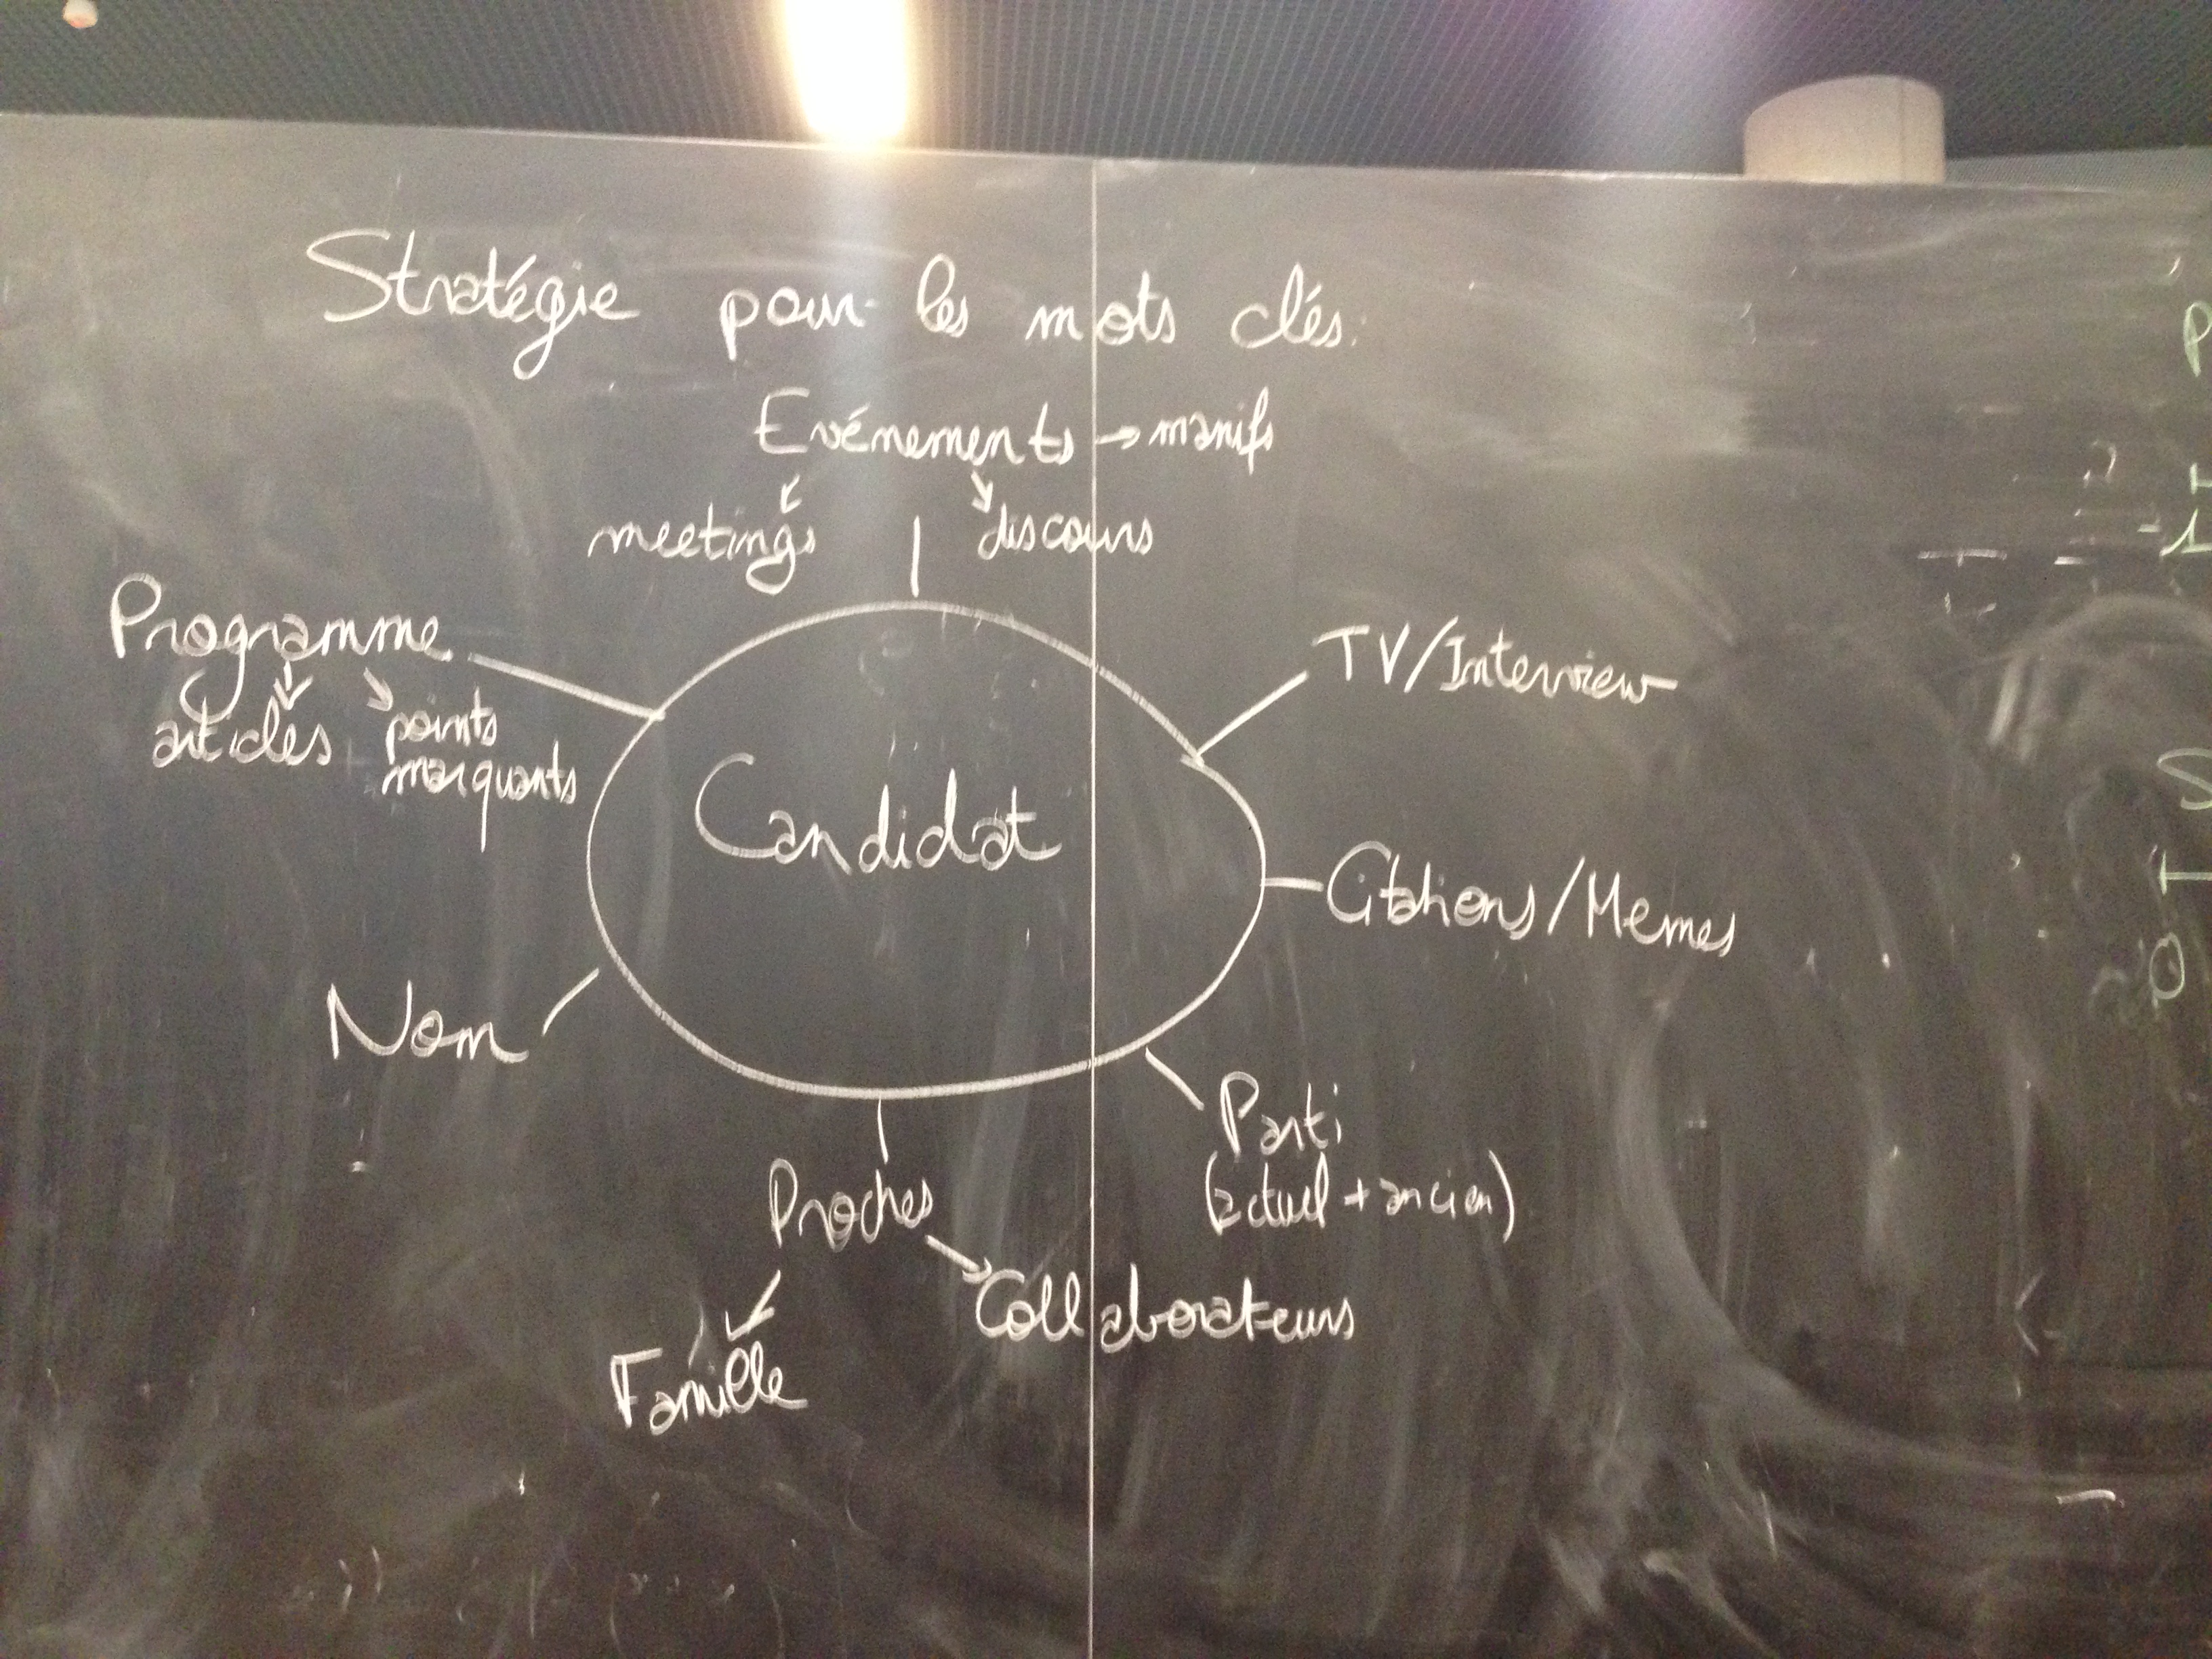 Stratégie pour les mots clés:
Evénements → manifs
meetings discours
Programme
articles points
marquants
TV/Interview
Candidat
Citations/Memes
Nom
Parti
(actuel + ancien)
Proches
Collaborateurs
Famille